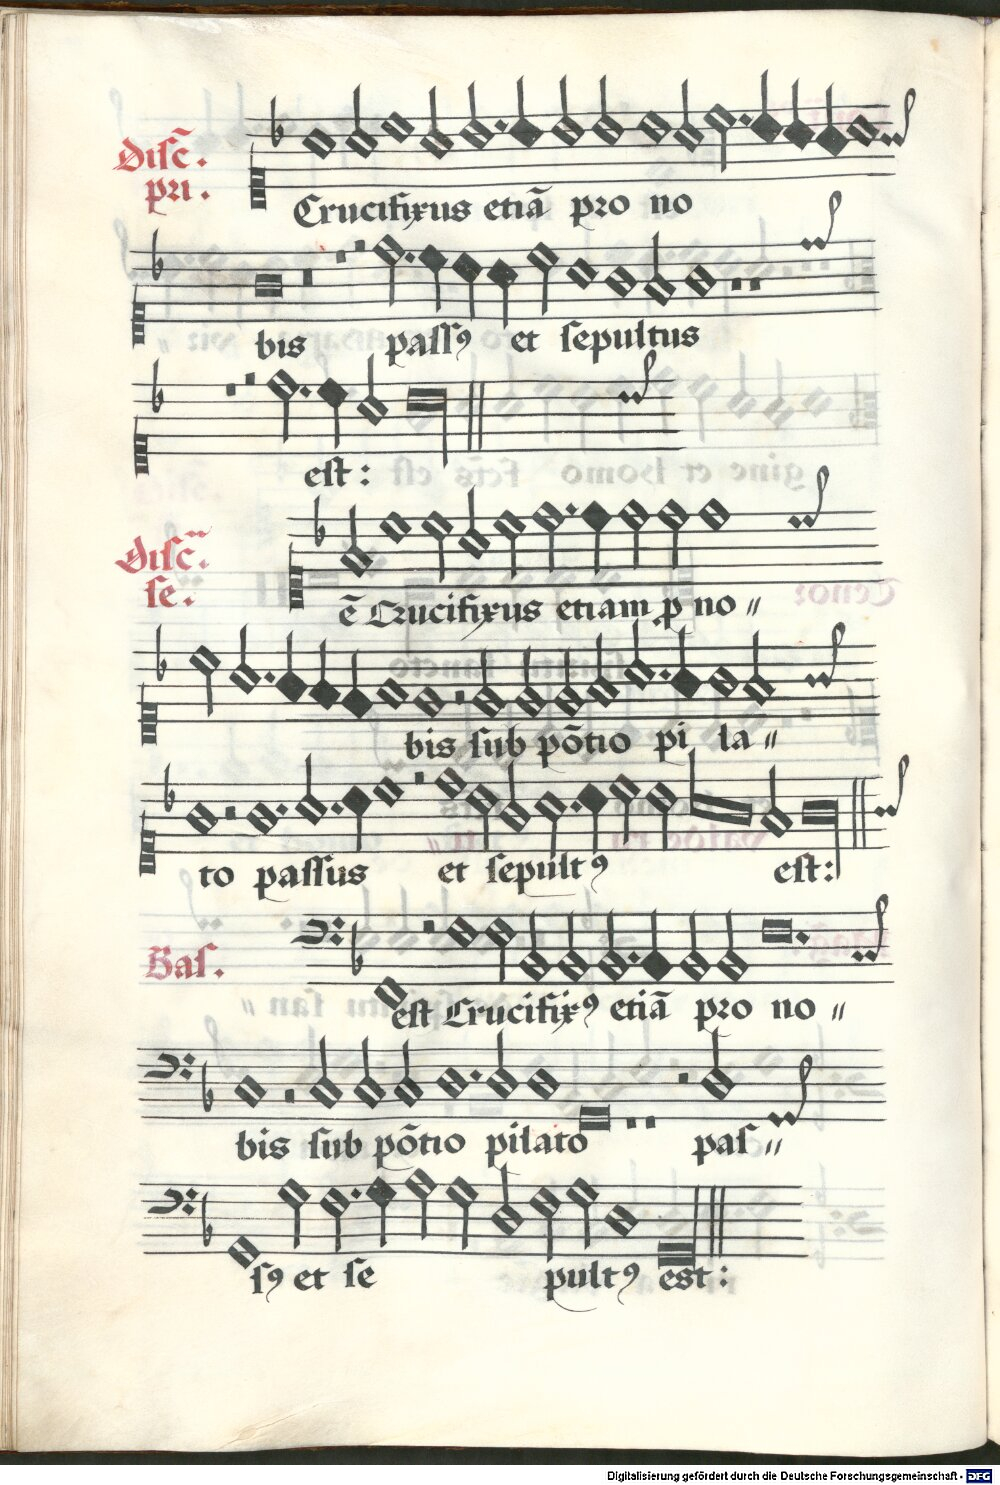 Disc̄.
pri.
Crucifixus etiā pro no
bis passꝰ et sepultus
est:
Disc̄.
se.
ē Crucifixus etiam ꝓ no〃
bis sub pōtio pi la〃
to passus et sepultꝰ est:
Bas.
est Crucifixꝰ etiā pro no〃
bis sub pōtio pilato pas〃
sꝰ et se pultꝰ est:
Digitalisierung gefördert durch die Deutsche Forschungsgemeinschaft - DFG